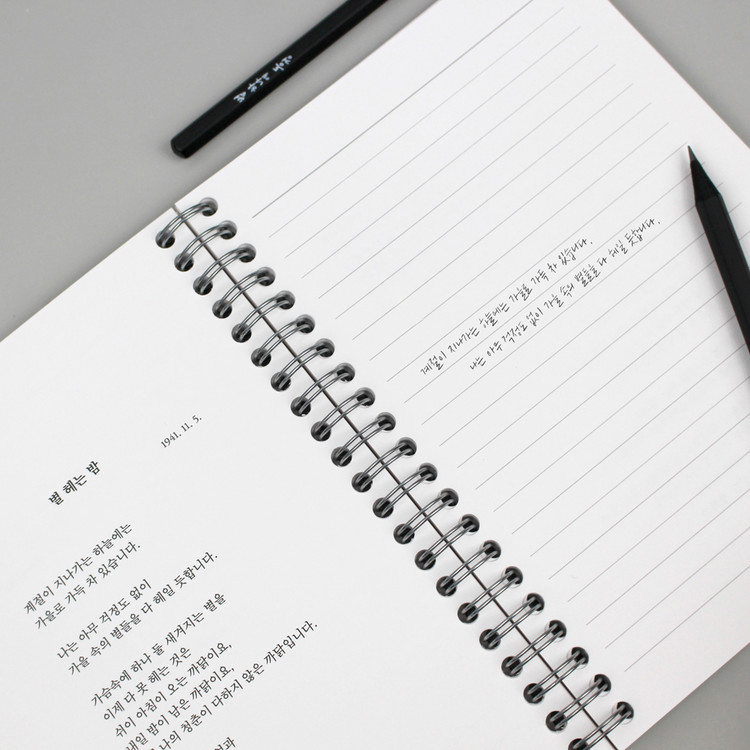 별 헤는 밤
1941. 11. 5.
계절이 지나가는 하늘에는
가을로 가득 차 있습니다.
나는 아무 걱정도 없이
가을 속의 별들을 다 헤일 듯합니다.
가슴속에 하나 둘 새겨지는 별을
이제 다 못 헤는 것은
쉬이 아침이 오는 까닭이요,
내일 밤이 남은 까닭이요,
나의 청춘이 다하지 않은 까닭입니다.
계절이 지나가는 하늘에는 가을로 가득 차 있습니다.
나는 아무 걱정도 없이 가을 속의 별들을 다 헤일 듯합니다.